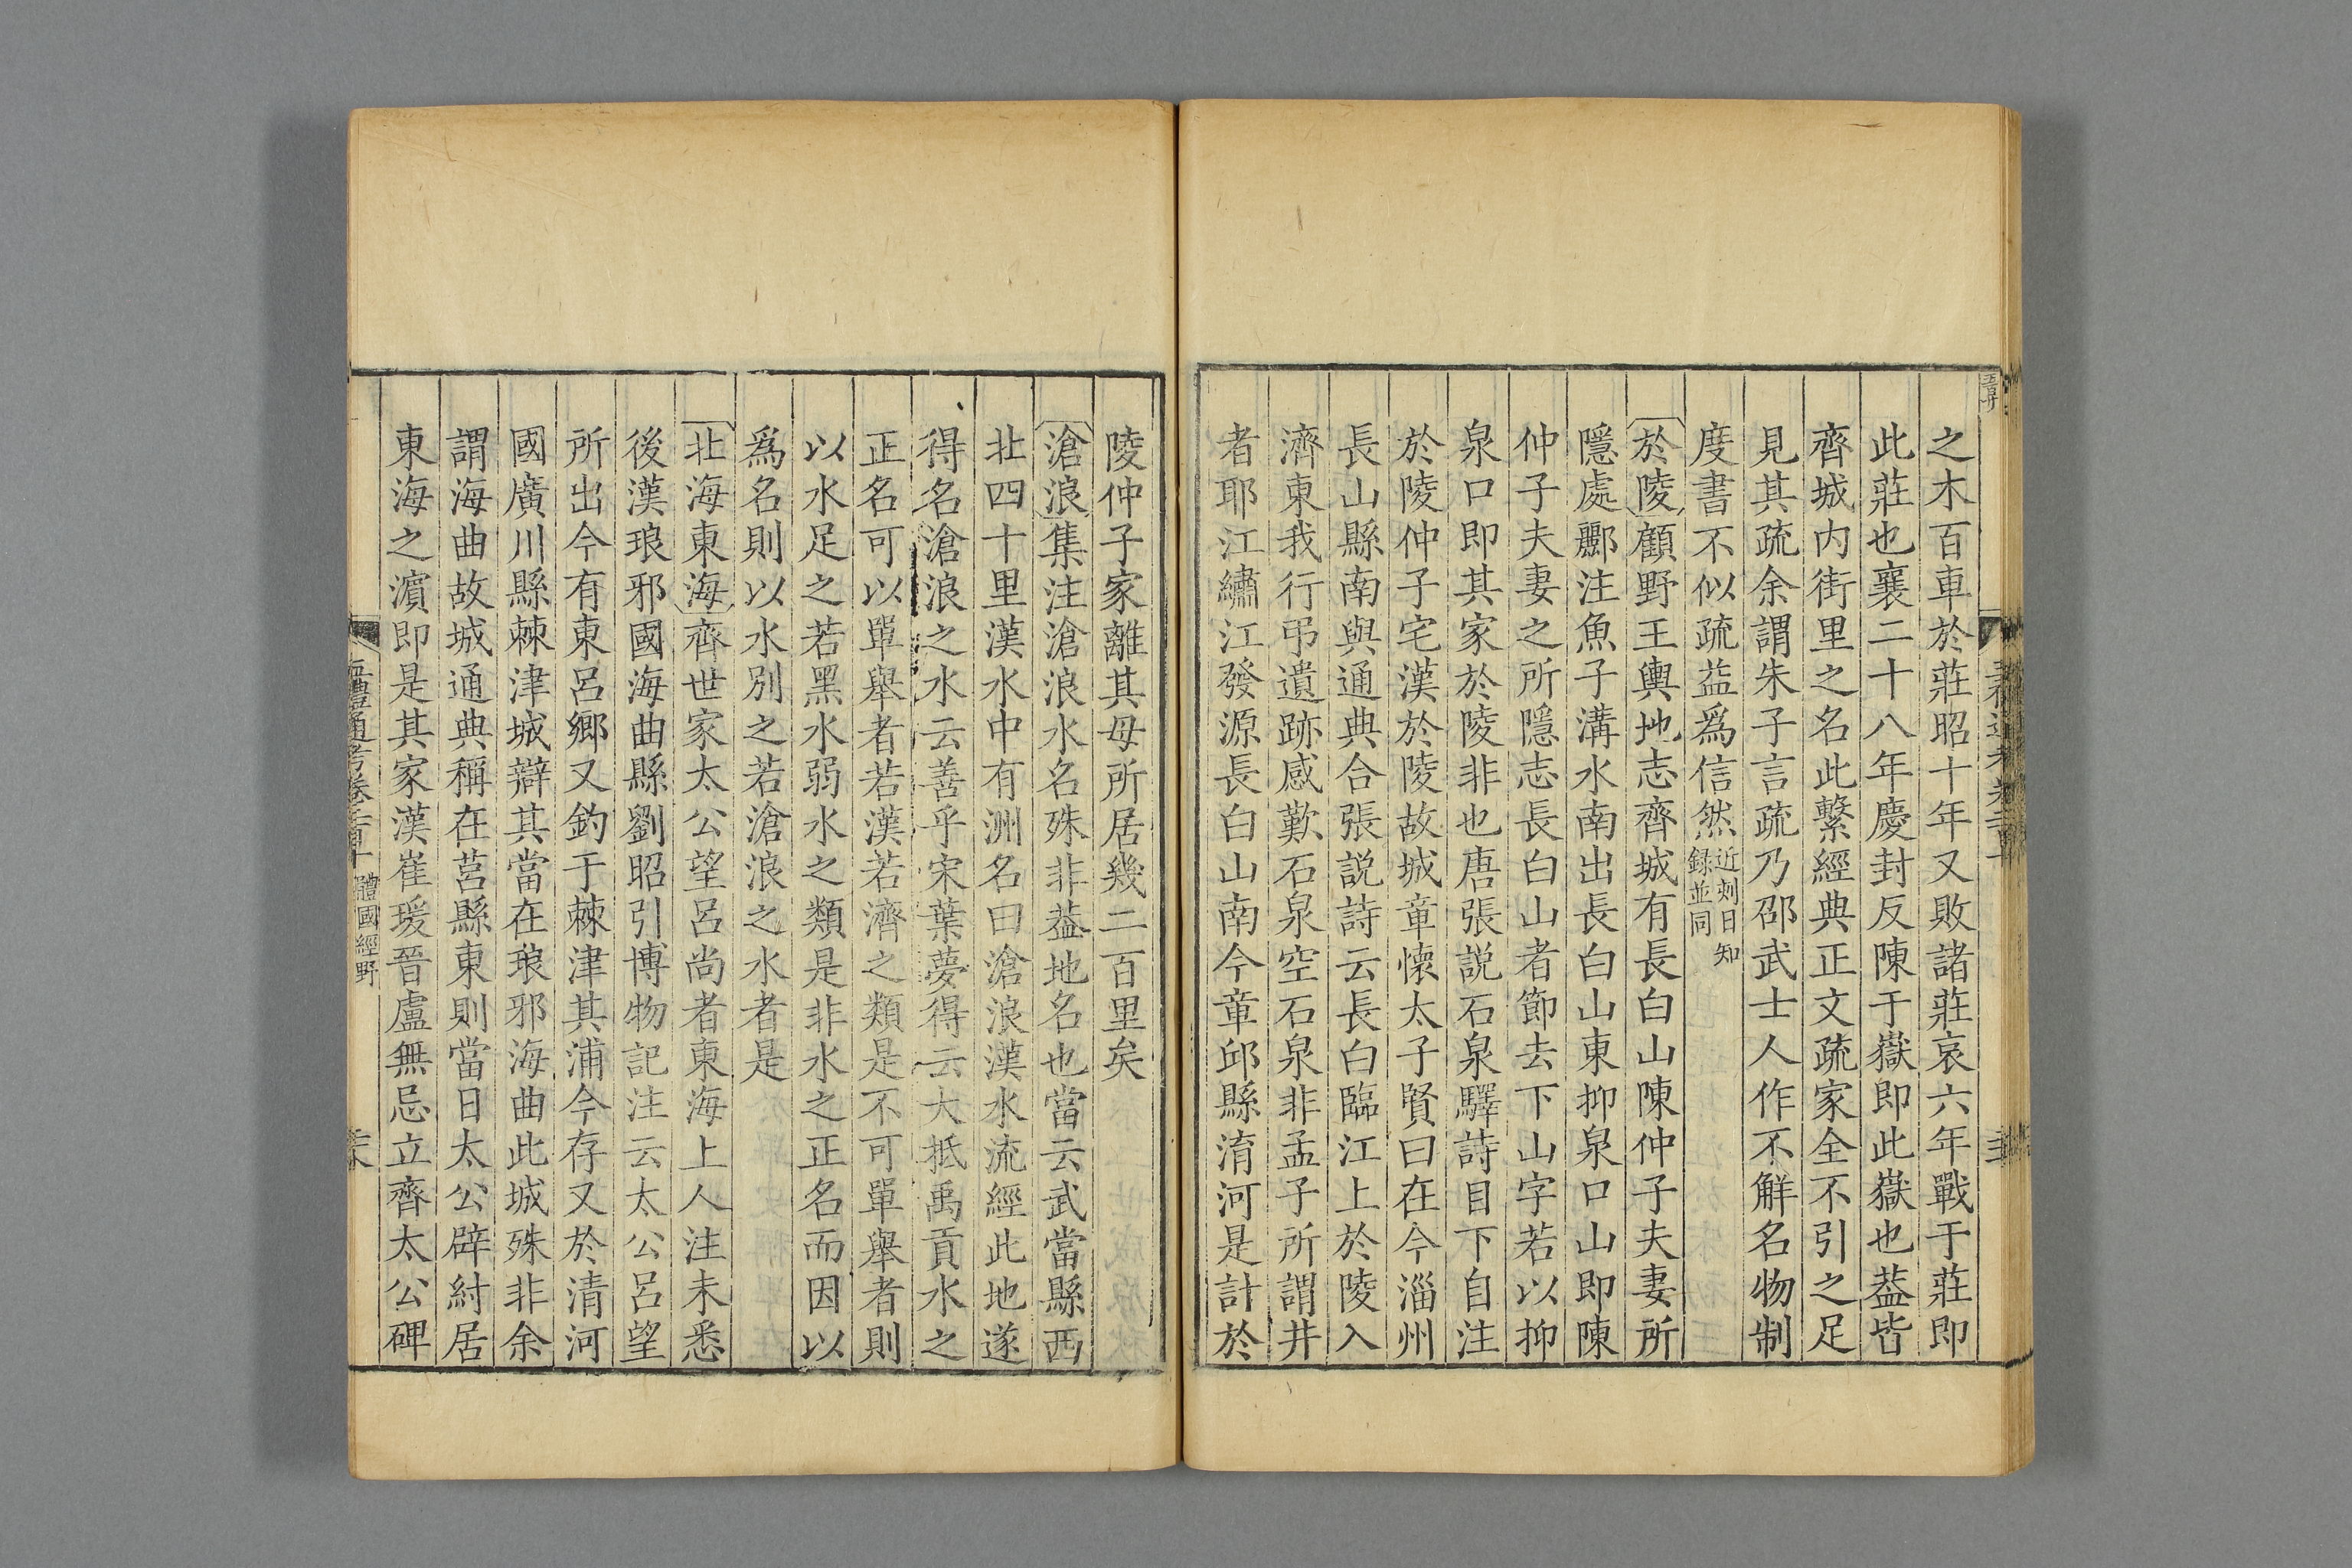 之木百車於莊昭十年又敗諸莊哀六年戰于莊即
此莊也襄二十八年慶封反陳于嶽即此嶽也葢皆
齊城内街里之名此繫經典正文疏家全不引之足
見其疏余謂朱子言疏乃邵武士人作不觧名物制
度書不似疏葢爲信然近刻日知
録並同
於陵顧野王輿地志齊城有長白山陳仲子夫妻所
隱處酈注魚子溝水南出長白山東抑泉口山即陳
仲子夫妻之所隱志長白山者節去下山字若以抑
泉口即其家於陵非也唐張説石泉驛詩目下自注
於陵仲子宅漢於陵故城章懷太子賢曰在今淄州
長山縣南與通典合張説詩云長白臨江上於陵入
濟東我行弔遺跡感歎石泉空石泉非孟子所謂井
者耶江繡江發源長白山南今章邱縣淯河是計於
陵仲子家離其母所居幾二百里矣
滄浪集注滄浪水名殊非葢地名也當云武當縣西
北四十里漢水中有洲名曰滄浪漢水流經此地遂
得名滄浪之水云善乎宋葉夢得云大抵禹貢水之
正名可以單舉者若漢若濟之類是不可單舉者則
以水足之若黑水弱水之類是非水之正名而因以
爲名則以水別之若滄浪之水者是
北海東海齊世家太公望呂尚者東海上人注未悉
後漢琅邪國海曲縣劉昭引博物記注云太公呂望
所出今有東呂鄉又釣于棘津其浦今存又於清河
國廣川縣棘津城辯其當在琅邪海曲此城殊非余
謂海曲故城通典稱在莒縣東則當日太公辟紂居
東海之濵即是其家漢崔瑗晉盧無忌立齊太公碑
五禮通考卷二百十 體國經野